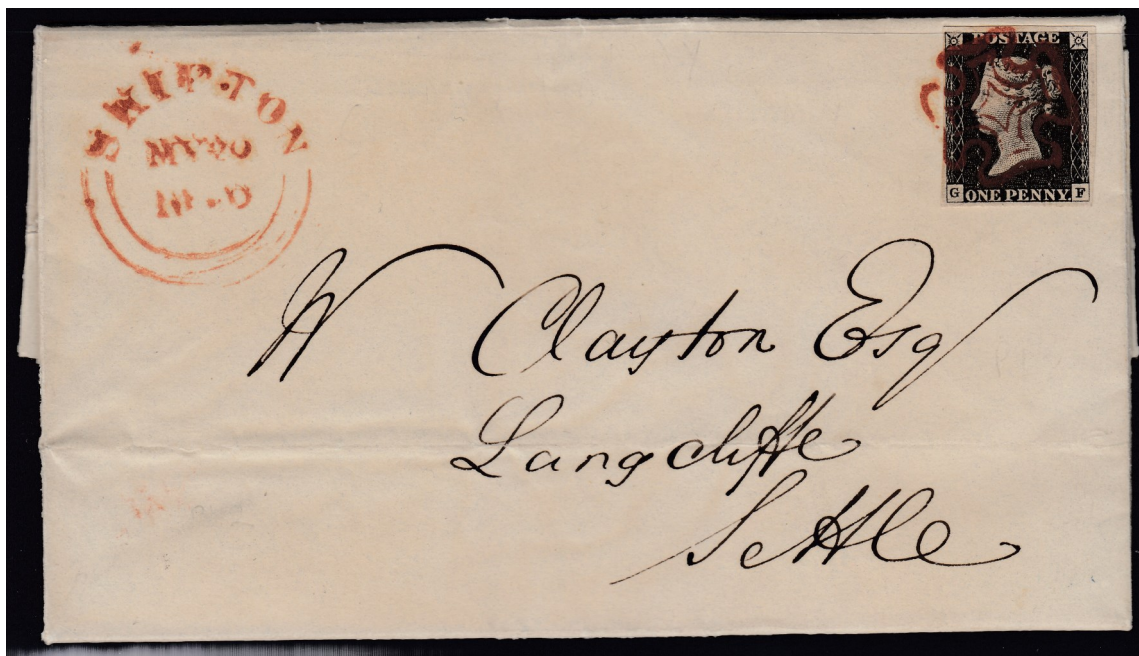 SKIPTON
MY 20
POSTAGE
G ONE PENNY. F
W Clayton Esq
Langcliffe
Settle